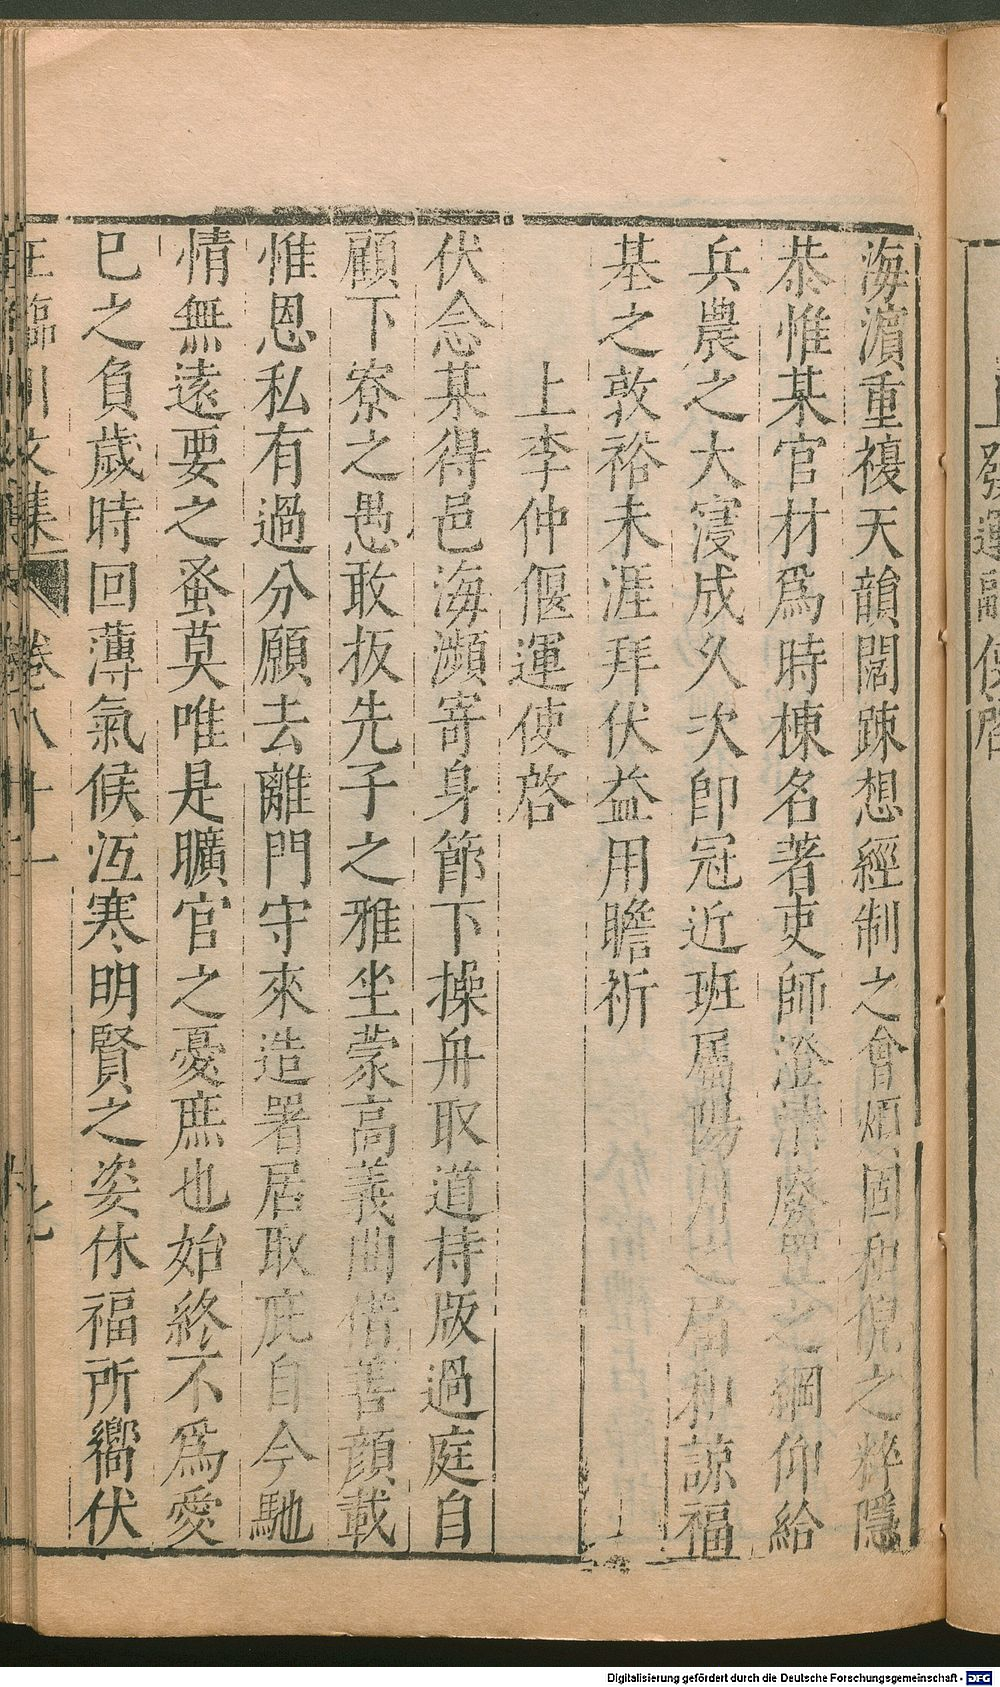 海濵重複天韻闊踈想經制之會煩固和倪之粹隱
恭惟某官材爲時棟名著吏師澄清廢置之綱仰給
兵農之大寖成久次卽冠近班屬陽月之届和諒福
基之敦裕未涯拜伏益用瞻祈
上李仲偃運使啓
伏念某得邑海瀕寄身節下操舟取道持版過庭自
顧下寮之愚敢扳先子之雅坐蒙高義曲借善顔載
惟恩私有過分願去離門守來造署居取庇自今馳
情無遠要之蚤莫唯是曠官之憂庶也始終不爲愛
巳之負歲時回薄氣候沍寒明賢之姿休福所嚮伏
王臨川文集 卷八十一
上發運副使啓
Digitalisierung gefördert durch die Deutsche Forschungsgemeinschaft - DFG